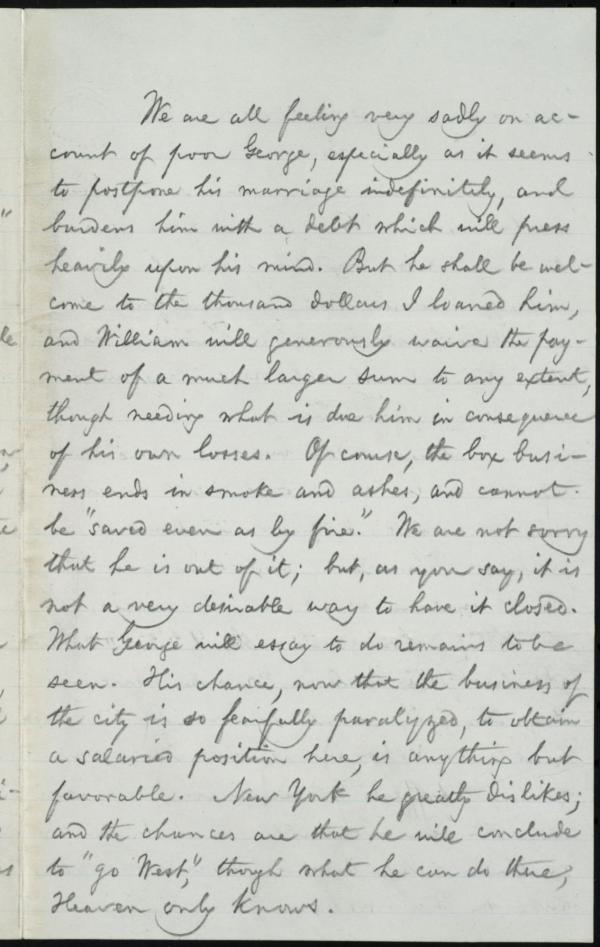 We are all feeling very sadly on ac-
count of poor George, especially as it seems
to postpone his marriage indefinitely, and
burdens him with a debt which will press
heavily upon his mind. But he shall be wel-
come to the thousand dollars I loaned him,
and William will generously waive the pay-
ment of a much larger sum to any extent,
though needing what is due him in consequence
of his own losses. Of course, the box busi-
ness ends in smoke and ashes, and cannot
be "saved even as by fire." We are not sorry
that he is out of it; but, as you say, it is
not a very desirable way to have it closed.
What George will essay to do remains to be
seen. His chance, now that the business of
the city is so fearfully paralyzed, to obtain
a salaried position here, is anything but
favorable. New York he greatly dislikes;
and the chances are that he will conclude
to "go West," though what he can do there,
Heaven only knows.